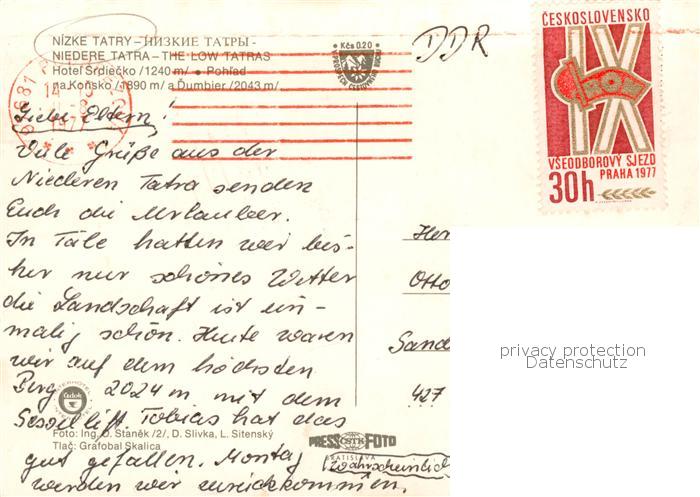 NÍZKE TATRY - НИЗКИЕ ТАТРЫ -
NIEDERE TATRA - THE LOW TATRAS
Hotel Srdiečko /1240 m/ ● Pohľad
na Koňsko /1890 m/ a Ďumbier /2043 m/
Kčs 0.20
DDR
ČESKOSLOVENSKO
IX
VŠEODBOROVÝ SJEZD
PRAHA 1977
30h
Liebe Eltern!
Viele Grüße aus der
Niederen Tatra senden
Euch die Urlauber.
In Tale hatten wir bis-
her nur schönes Wetter
die Landschaft ist ein-
malig schön. Heute waren
wir auf dem höchsten
Berg 2024 m mit dem
Sessellift. Tobias hat das
gut gefallen. Montag (wahrscheinlich
werden wir zurückkommen.
Her
Otto
Sand
427
čedok
Foto: Ing. O. Staněk /2/, D. Slivka, L. Sitenský
Tlač: Grafobal Skalica
PRESS ČSTK FOTO
BRATISLAVA
privacy protection
Datenschutz